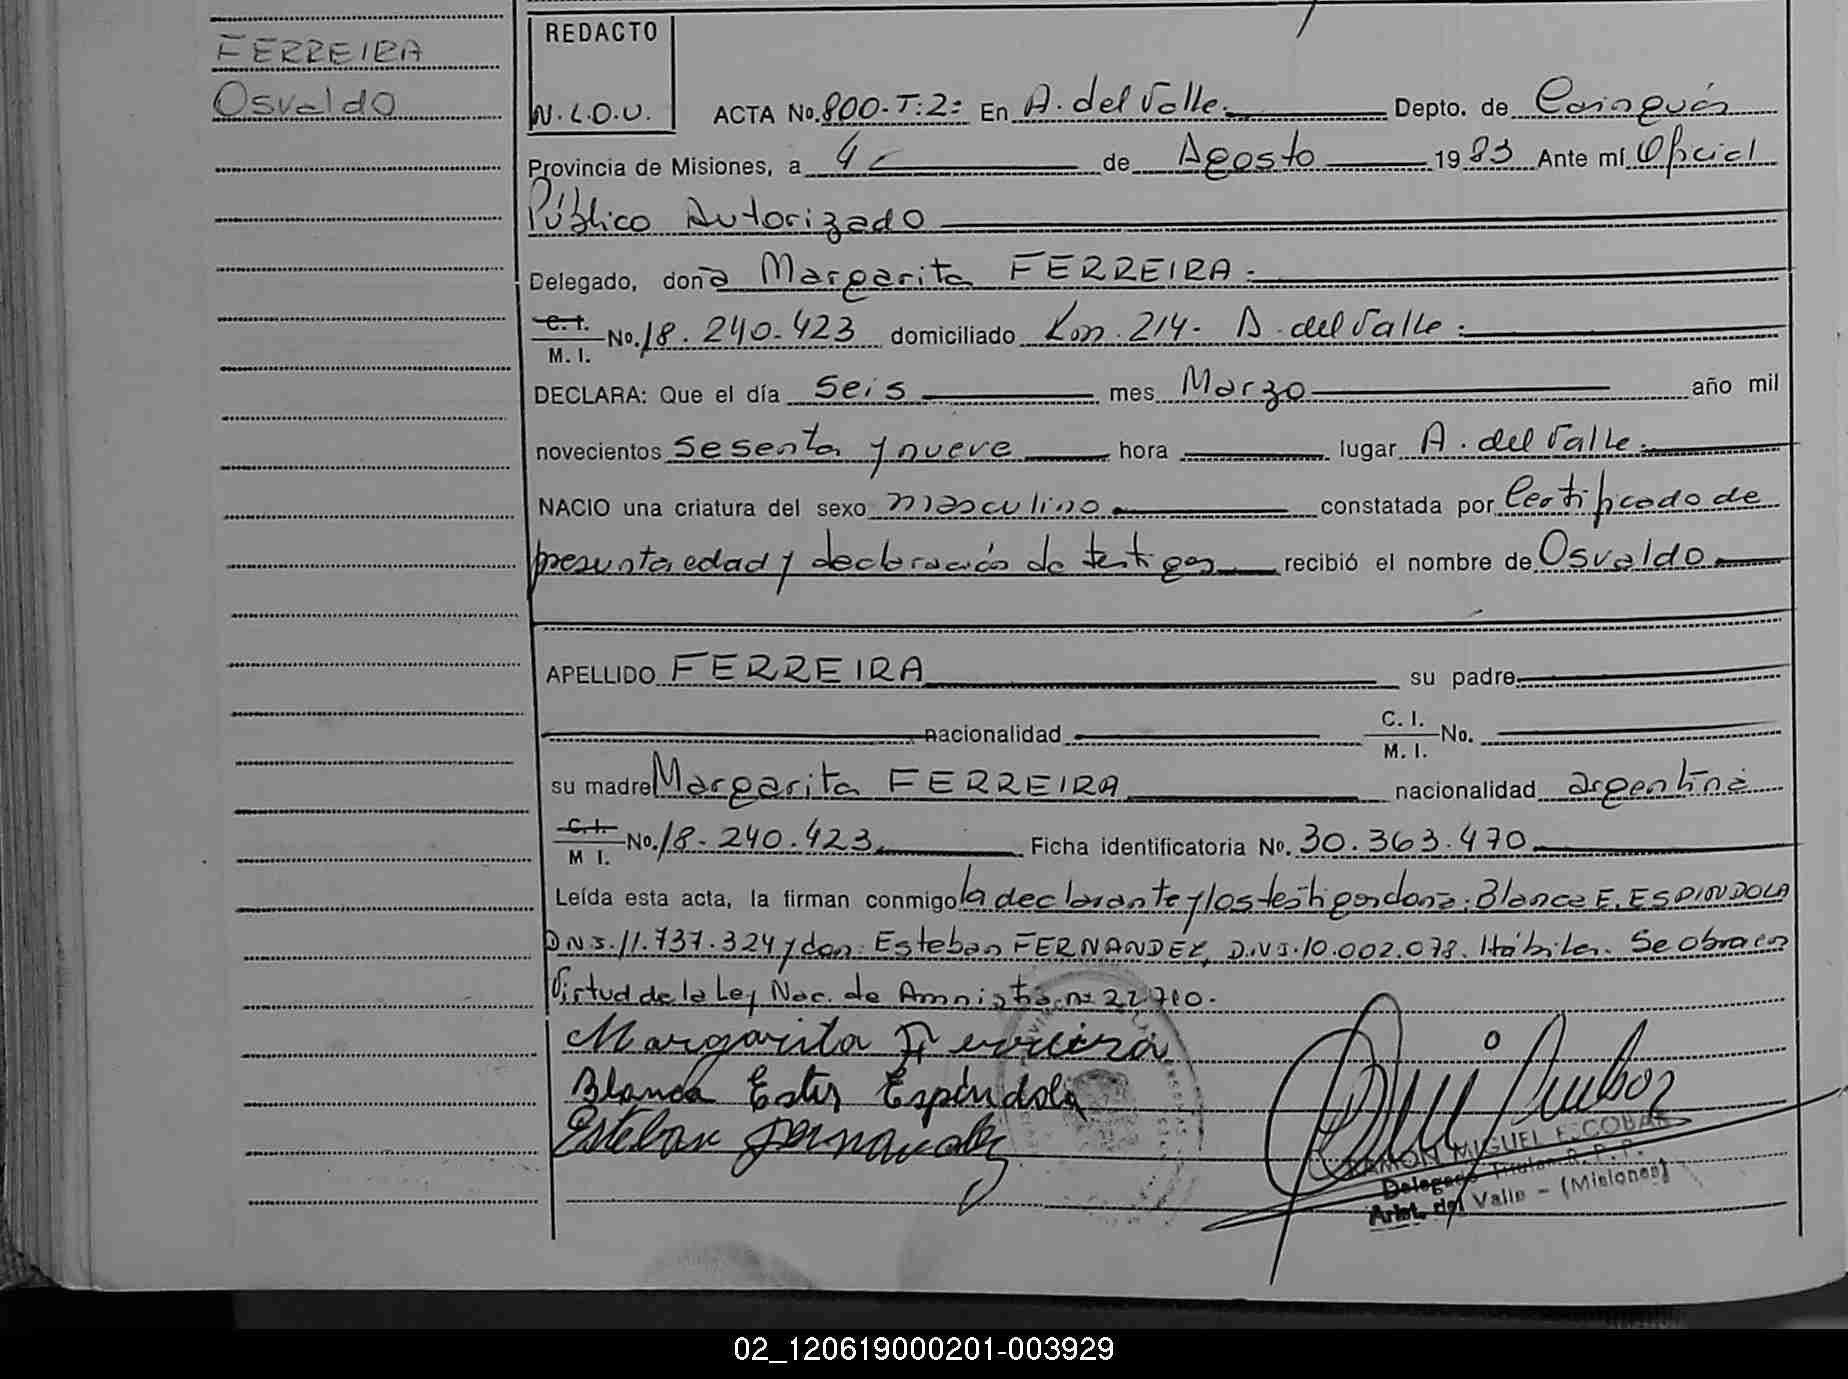 FERREIRA
Osvaldo
REDACTO
N.L.O.U.
ACTA No. 800-T:2: En A. del Valle. Depto. de Cainguás
Provincia de Misiones, a 4 de Agosto 1983 Ante mí Oficial
Público Autorizado
Delegado, doña Margarita FERREIRA:
C. I.
M. I. No. 18.240.423 domiciliado Km. 214- A. del Valle:
DECLARA: Que el día seis mes Marzo año mil
novecientos sesenta y nueve hora lugar A. del Valle:
NACIO una criatura del sexo masculino constatada por Certificado de
presunta edad y declaración de testigos recibió el nombre de Osvaldo
APELLIDO FERREIRA su padre
nacionalidad C. I.
M. I. No.
su madre Margarita FERREIRA nacionalidad argentina
C. I.
M I. No. 18.240.423 Ficha identificatoria No. 30.363.470
Leída esta acta, la firman conmigo la declarante y los testigos doña: Blanca E. ESPINDOLA
D.N.I. 11.737.324 y don: Esteban FERNANDEZ, D.N.I. 10.002.078. Hábiles. Se obra en
Virtud de la Ley Nac. de Amnistia nº 22.710.
Margarita Ferreira
Blanca Ester Espíndola
Esteban Fernandez
RAMON MIGUEL ESCOBAR
Delegado Titular R. P. P.
Arist. del Valle - (Misiones)
02_120619000201-003929